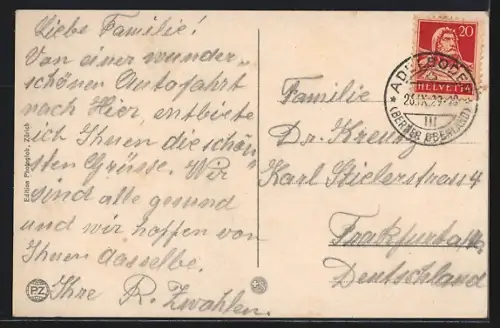 Liebe Familie!
Von einer wunder-
schönen Autofahrt
nach Hier, entbiete
ich Ihnen die schön-
sten Grüsse. Wir
sind alle gesund
und wir hoffen von
Ihnen dasselbe.
Ihre R. Zwahlen.
Edition Photoglob, Zürich
PZ
20
HELVETIA
ADELBODEN
(BERNER OBERLAND)
III
Familie
Dr. Kreuzig
Karl Stielerstrass 4
Frakfurt a/M.
Deutschland